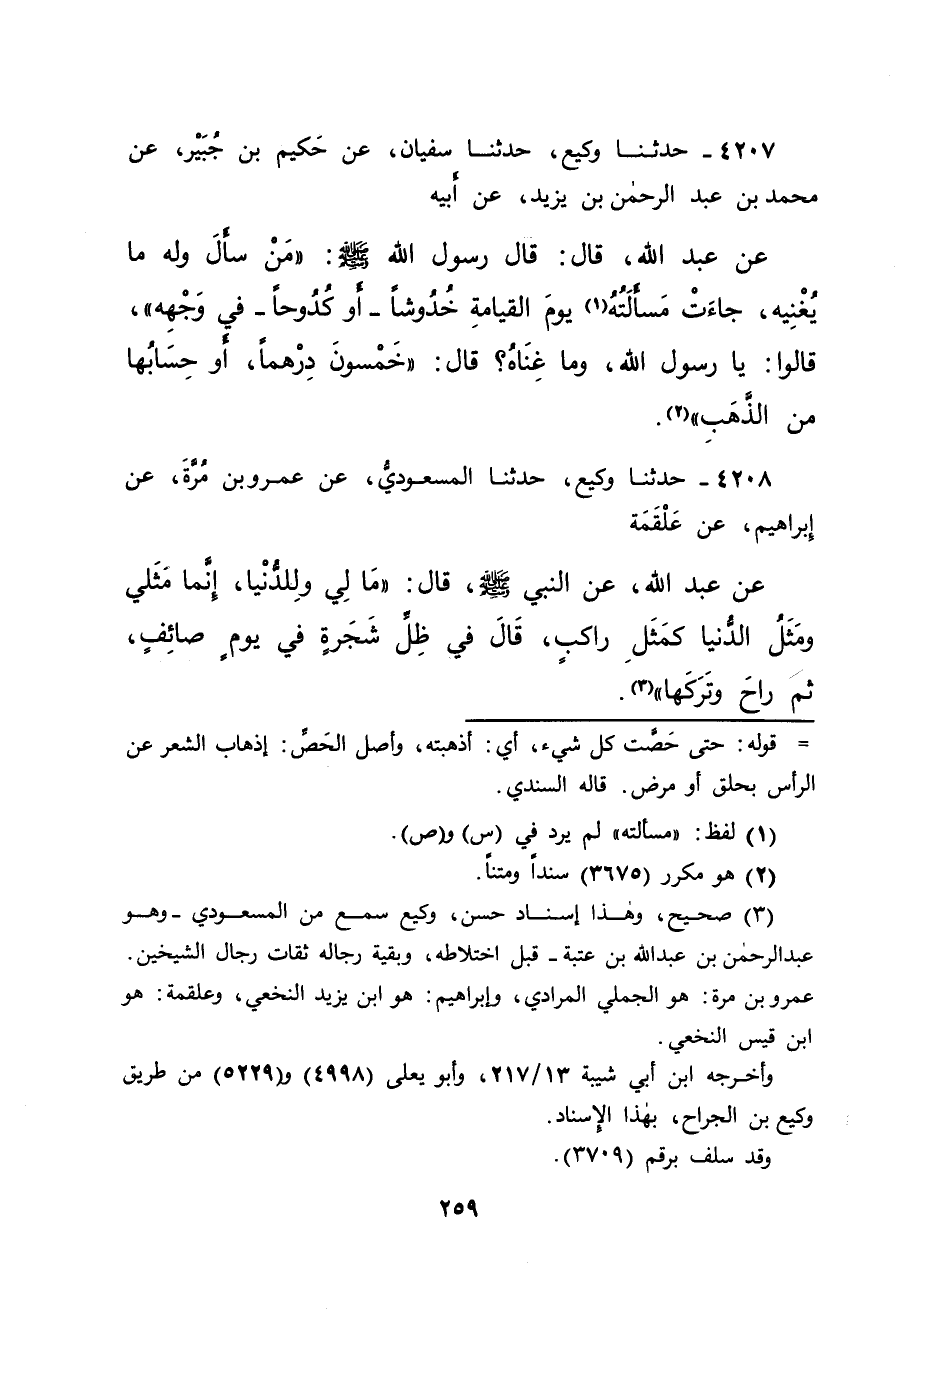 ٤٢٠٧ ـ حدثنـا وكيع، حدثنـا سفيان، عن حَكيم بن جُبَيْر، عن
محمد بن عبد الرحمٰن بن يزيد، عن أَبيه
عن عبد الله، قال: قال رسول الله ﷺ: «مَنْ سأَلَ وله ما
يُغْنِيه، جاءَتْ مَسأَلَتُهُ(١) يومَ القيامةِ خُدُوشاً ـ أَو كُدُوحاً ـ في وَجْهِه»،
قالوا: يا رسول الله، وما غِنَاهُ؟ قال: «خَمْسونَ دِرْهماً، أَو حِسَابُها
من الذَّهَبِ»(٢).
٤٢٠٨ ـ حدثنـا وكيع، حدثنـا المسعـوديُّ، عن عمـرو بن مُرَّةَ، عن
إِبراهيم، عن عَلْقَمَة
عن عبد الله، عن النبي ﷺ، قال: «مَا لِي وللدُّنْيا، إِنَّما مَثَلي
ومَثَلُ الدُّنيا كمَثَلِ راكبٍ، قَالَ في ظِلِّ شَجَرةٍ في يومٍ صائِفٍ،
ثم راحَ وتَرَكَها»(٣).
= قوله: حتى حَصَّت كل شيء، أي: أذهبته، وأصل الحَصِّ: إذهاب الشعر عن
الرأس بحلق أو مرض. قاله السندي.
(١) لفظ: «مسألته» لم يرد في (س) و(ص).
(٢) هو مكرر (٣٦٧٥) سنداً ومتناً.
(٣) صحيح، وهٰذا إسنـاد حسن، وكيع سمـع من المسعـودي ـ وهـو
عبدالرحمٰن بن عبدالله بن عتبة ـ قبل اختلاطه، وبقية رجاله ثقات رجال الشيخين.
عمرو بن مرة: هو الجملي المرادي، وإبراهيم: هو ابن يزيد النخعي، وعلقمة: هو
ابن قيس النخعي.
وأخـرجه ابن أبي شيبة ٢١٧/١٣، وأبو يعلى (٤٩٩٨) و(٥٢٢٩) من طريق
وكيع بن الجراح، بهٰذا الإسناد.
وقد سلف برقم (٣٧٠٩).
٢٥٩